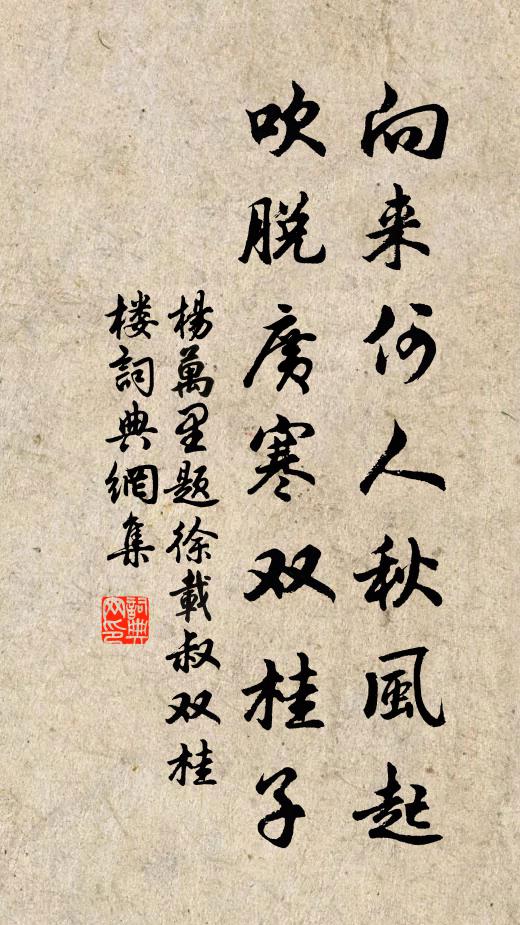 向来何人秋風起
吹脱廣寒双桂子
楊萬里题徐載叔双桂
楼詞典網集
詞典网印